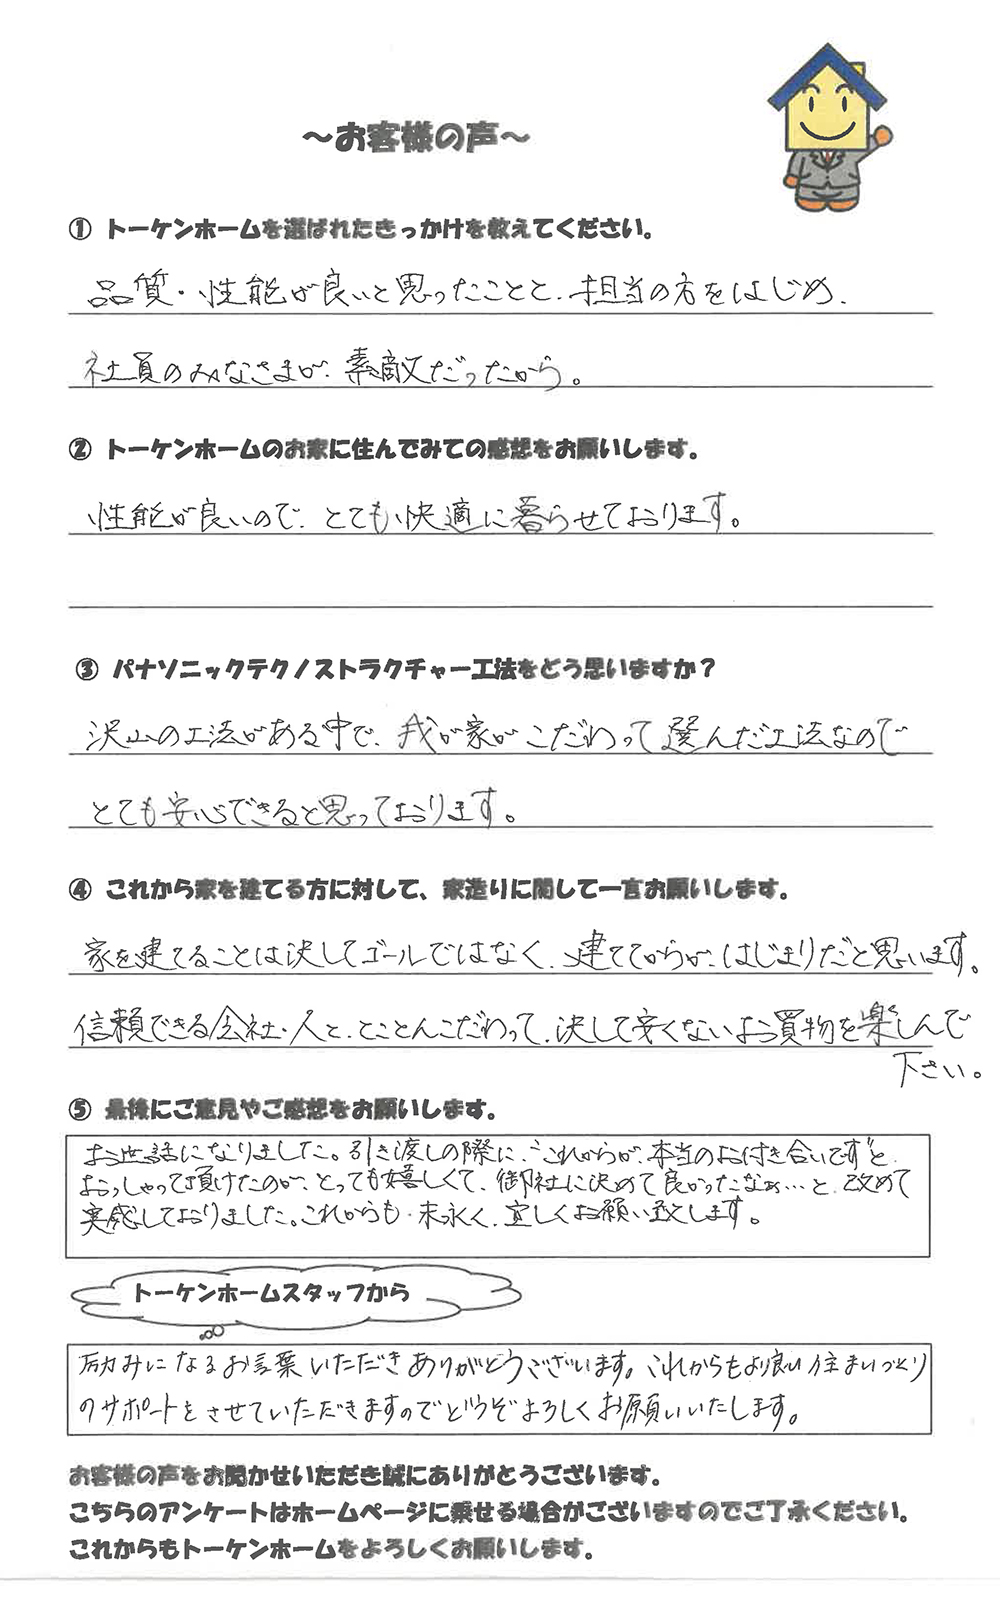 ～お客様の声～
① トーケンホームを選ばれたきっかけを教えてください。
品質・性能が良いと思ったことと、担当の方をはじめ、
社員のみなさまが、素敵だったから。
② トーケンホームのお家に住んでみての感想をお願いします。
性能が良いので、とても快適に暮らせております。
③ パナソニックテクノストラクチャー工法をどう思いますか？
沢山の工法がある中で、我が家がこだわって選んだ工法なので
とても安心できると思っております。
④ これから家を建てる方に対して、家造りに関して一言お願いします。
家を建てることは決してゴールではなく、建ててからが、はじまりだと思います。
信頼できる会社・人と、とことんこだわって、決して安くないお買物を楽しんで
下さい。
⑤ 最後にご意見やご感想をお願いします。
お世話になりました。引き渡しの際に、“これからが、本当のお付き合いです”と、
おっしゃって頂けたのが、とっても嬉しくて、御社に決めて良かったなぁ…と、改めて
実感しておりました。これからも、末永く、宜しくお願い致します。
トーケンホームスタッフから
励みになるお言葉いただきありがとうございます。これからもより良い住まいづくり
のサポートをさせていただきますのでどうぞよろしくお願いいたします。
お客様の声をお聞かせいただき誠にありがとうございます。
こちらのアンケートはホームページに乗せる場合がございますのでご了承ください。
これからもトーケンホームをよろしくお願いします。